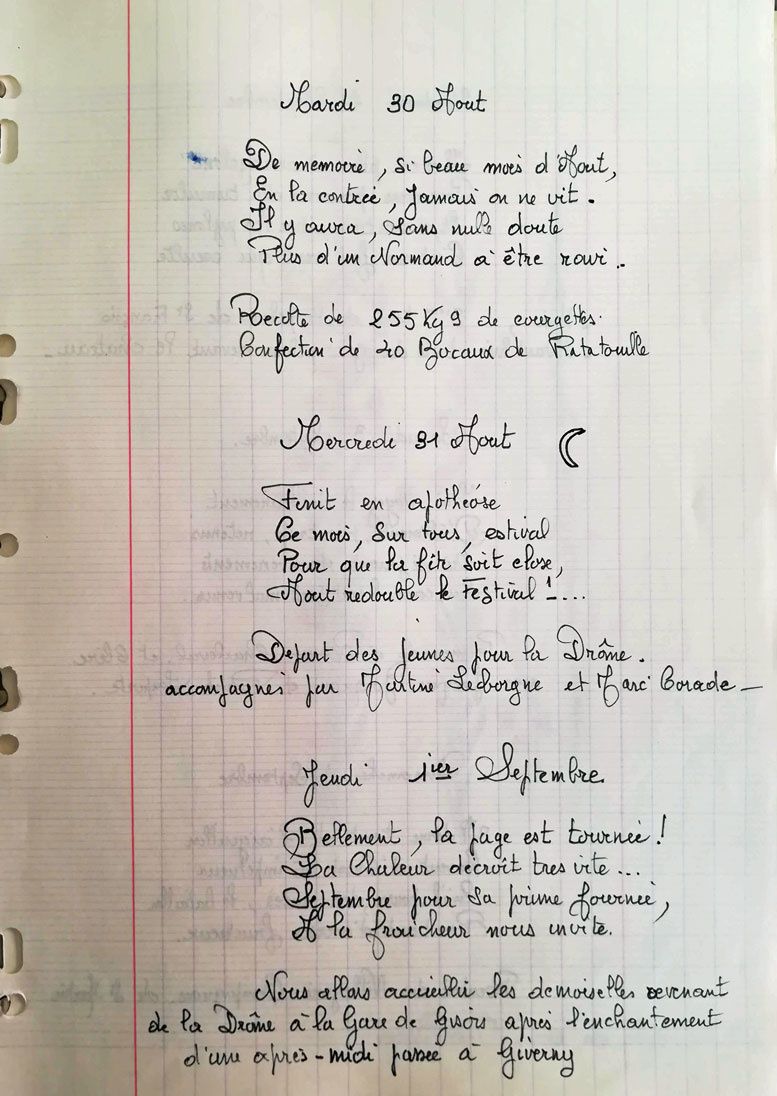 Mardi 30 Aout
De memoire, si beau mois d'Aout,
En la contrée, jamais on ne vit.
Il y aura, sans nulle doute
Plus d'un Normand à être ravi..
Recolte de 255 Kg 9 de courgettes.
Confection de 20 Bocaux de Ratatouille
Mercredi 31 Aout
Finit en apothéose
Ce mois, sur tous, estival
Pour que la fête soit close,
Aout redouble le Festival !....
Depart des jeunes pour la Drôme.
accompagnés par Martine Leborgne et Marc Corade_
Jeudi 1ier Septembre
Bellement, la page est tournée !
La Chaleur décroît tres vite...
Septembre pour sa prime fournée,
A la fraicheur nous invite.
Nous allons accueillir les demoiselles revenant
de la Drôme à la Gare de Gisors après l'enchantement
d'une après-midi passée à Giverny